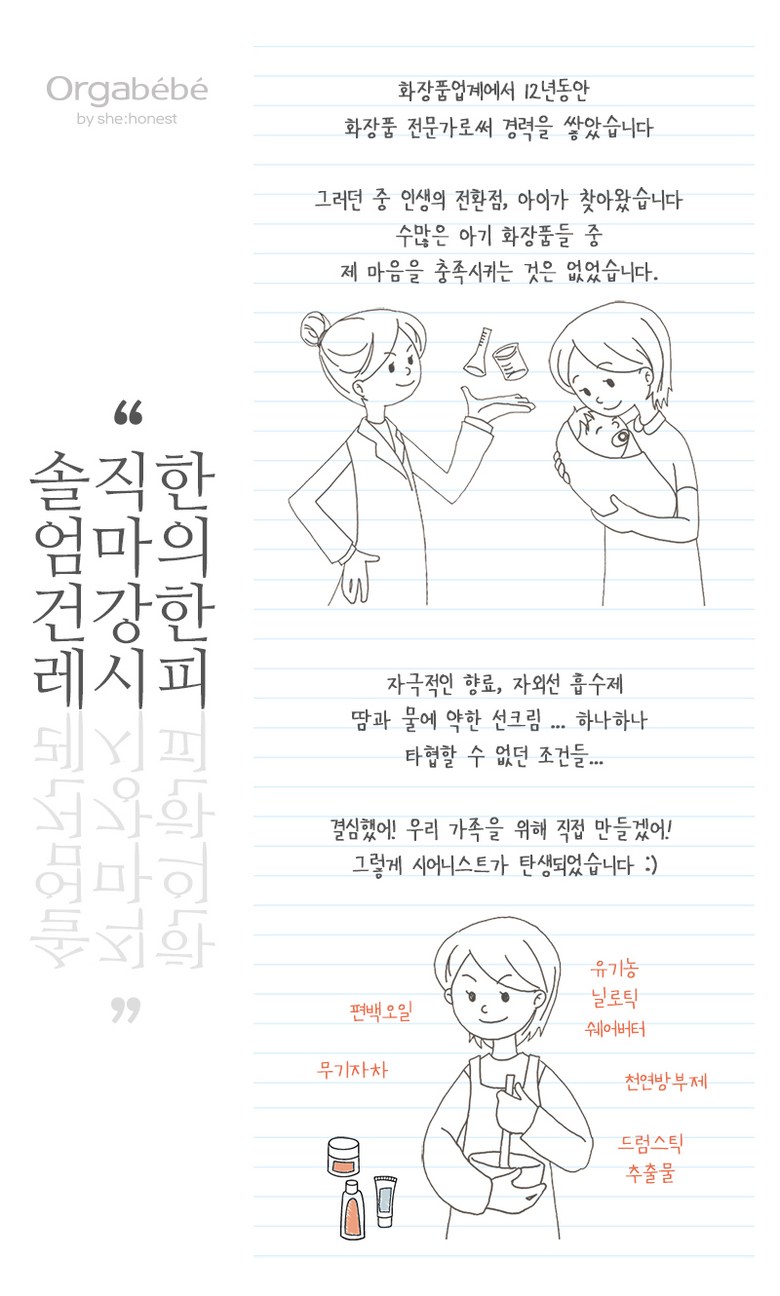 Orgabébé
by she:honest
“
솔직한
엄마의
건강한
레시피
”
화장품업계에서 12년동안
화장품 전문가로써 경력을 쌓았습니다
그러던 중 인생의 전환점, 아이가 찾아왔습니다
수많은 아기 화장품들 중
제 마음을 충족시키는 것은 없었습니다.
자극적인 향료, 자외선 흡수제
땀과 물에 약한 선크림 ... 하나하나
타협할 수 없던 조건들...
결심했어! 우리 가족을 위해 직접 만들겠어!
그렇게 시어니스트가 탄생되었습니다 :)
편백오일
무기자차
유기농
닐로틱
쉐어버터
천연방부제
드럼스틱
추출물